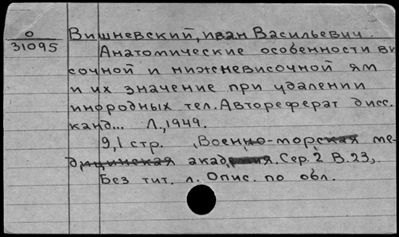 О
31095
Вишневский, Иван Васильевич.
Анатомические особенности ви
сочной и нижневисочной ям
и их значение при удалении
инородных тел. Автореферат дисс.
канд... Л., 1949.
9,1 стр. Военно-морская ме-
дицинская акад. Сер. 2 В. 23,
Без тит. л. Опис. по обл.